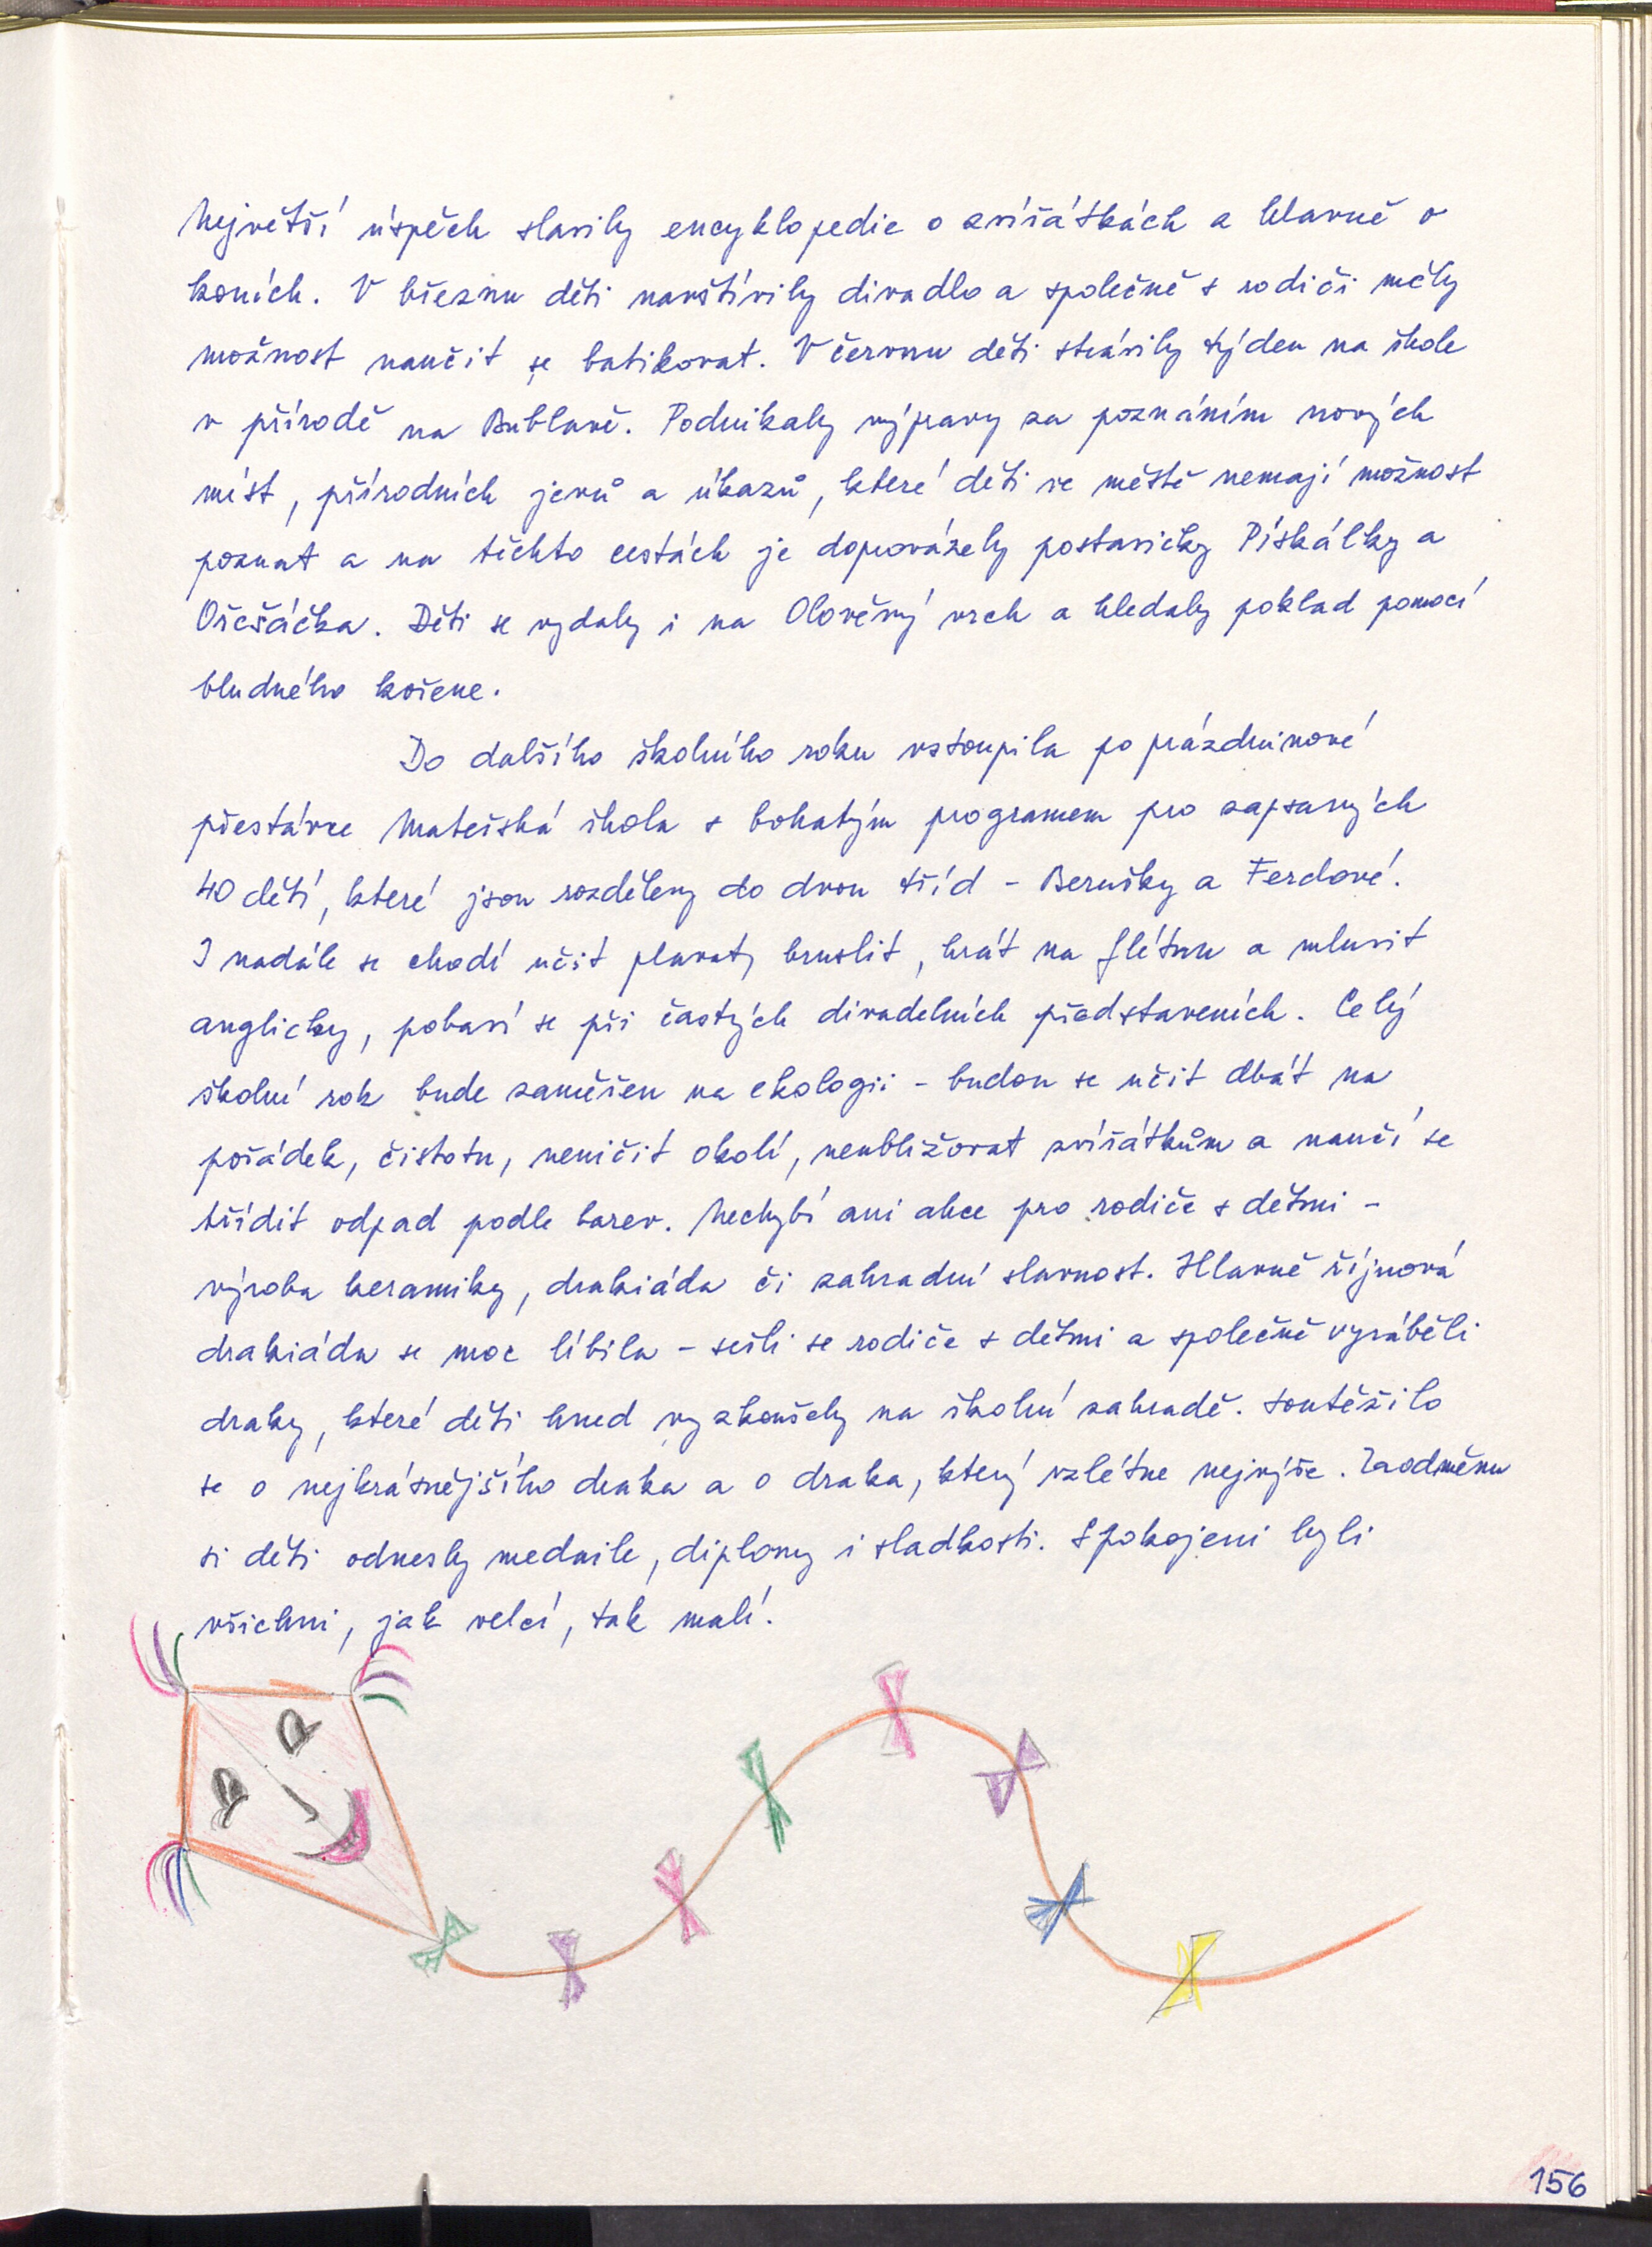 Největší úspěch slavily encyklopedie o zvířátkách a hlavně o
koních. V březnu děti navštívily divadlo a společně s rodiči měly
možnost naučit se batikovat. V červnu děti strávily týden na škole
v přírodě na Bublavě. Podnikaly výpravy za poznáním nových
míst, přírodních jevů a úkazů, které děti ve městě nemají možnost
poznat a na těchto cestách je doprovázely postavičky Pískálky a
Ořešáčka. Děti se vydaly i na Olověný vrch a hledaly poklad pomocí
bludného kořene.
Do dalšího školního roku vstoupila po prázdninové
přestávce Mateřská škola s bohatým programem pro zapsaných
40 dětí, které jsou rozděleny do dvou tříd - Berušky a Ferdové.
I nadále se chodí učit plavat, bruslit, hrát na flétnu a mluvit
anglicky, pobaví se při častých divadelních představeních. Celý
školní rok bude zaměřen na ekologii - budou se učit dbát na
pořádek, čistotu, neničit okolí, neubližovat zvířátkům a naučí se
třídit odpad podle barev. Nechybí ani akce pro rodiče s dětmi -
výroba keramiky, drakiáda či zahradní slavnost. Hlavně říjnová
drakiáda se moc líbila - sešli se rodiče s dětmi a společně vyráběli
draky, které děti hned vyzkoušely na školní zahradě. Soutěžilo
se o nejkrásnějšího draka a o draka, který vzlétne nejvýše. Za odměnu
si děti odnesly medaile, diplomy i sladkosti. Spokojeni byli
všichni, jak velcí, tak malí.
156